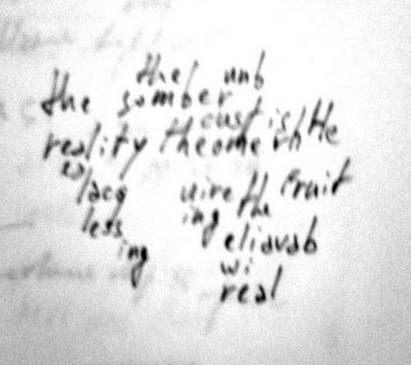 the unb
the somber
cust is the
reality theome rh
es
lacq uire th fruit
less ing the
ing eliavab
wi
real